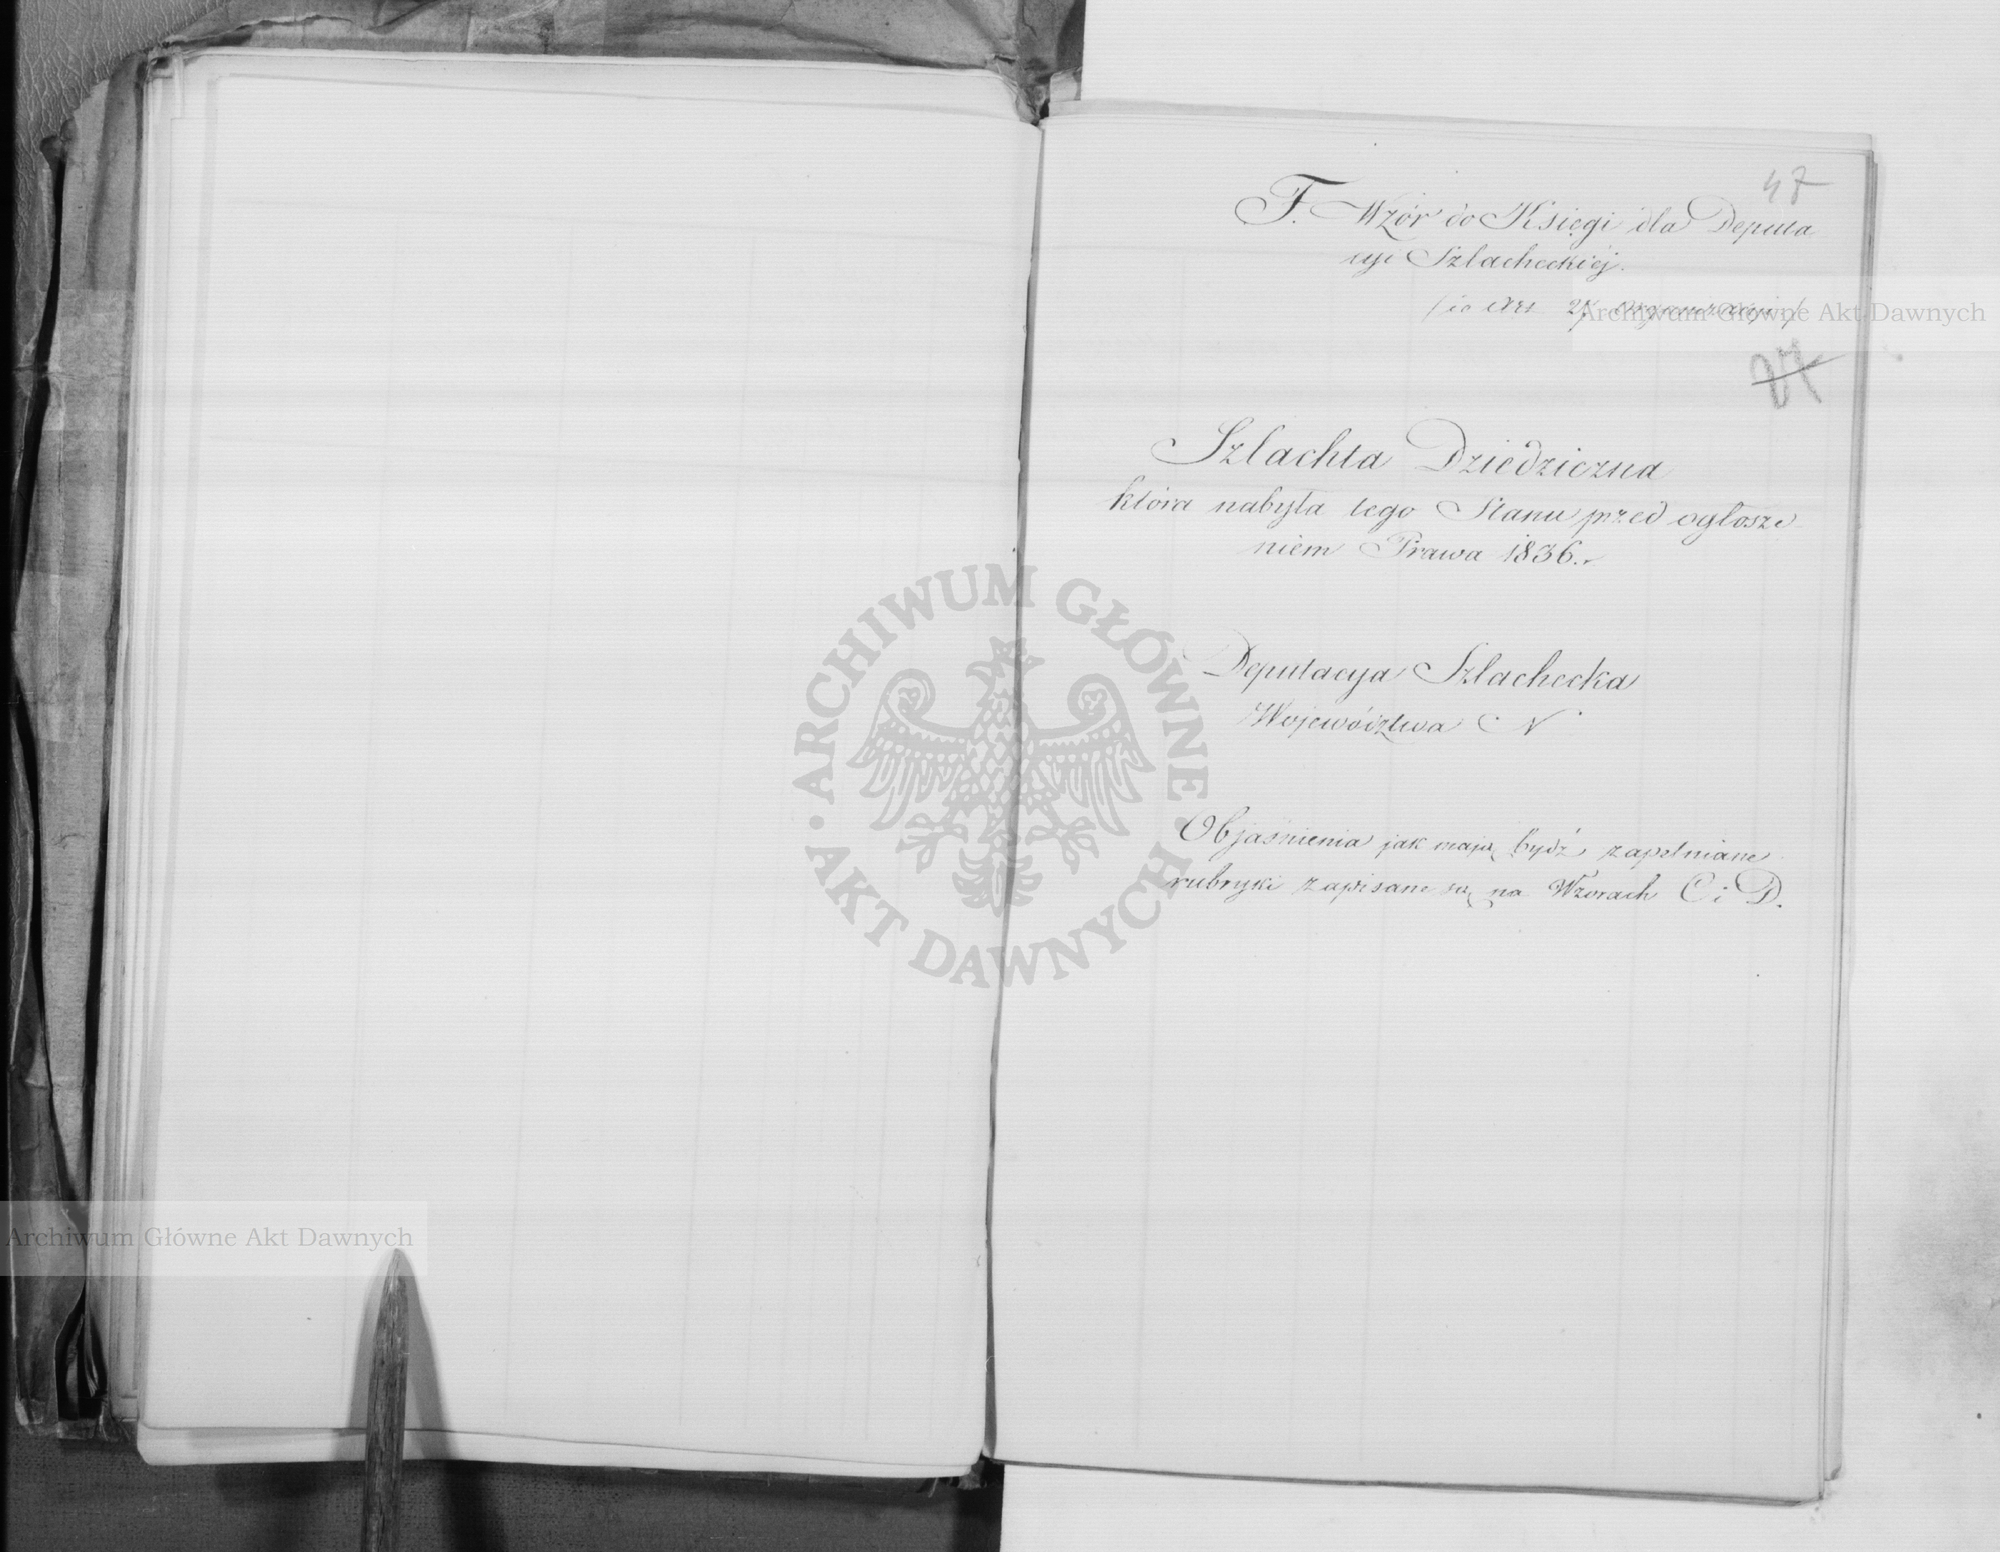 47
F. Wzór do Księgi dla Deputa
cyi Szlacheckiéj.
do Art 27 Organizacyi
27
Szlachta Dziedziczna
która nabyła tego Stanu przed ogłosze
niem Prawa 1836.
Deputacya Szlachecka
Województwa N
Objaśnienia jak mają bydź zapełniane
rubryki zapisane są na Wzorach C i D.
Archiwum Główne Akt Dawnych
ARCHIWUM GŁÓWNE AKT DAWNYCH
Archiwum Główne Akt Dawnych